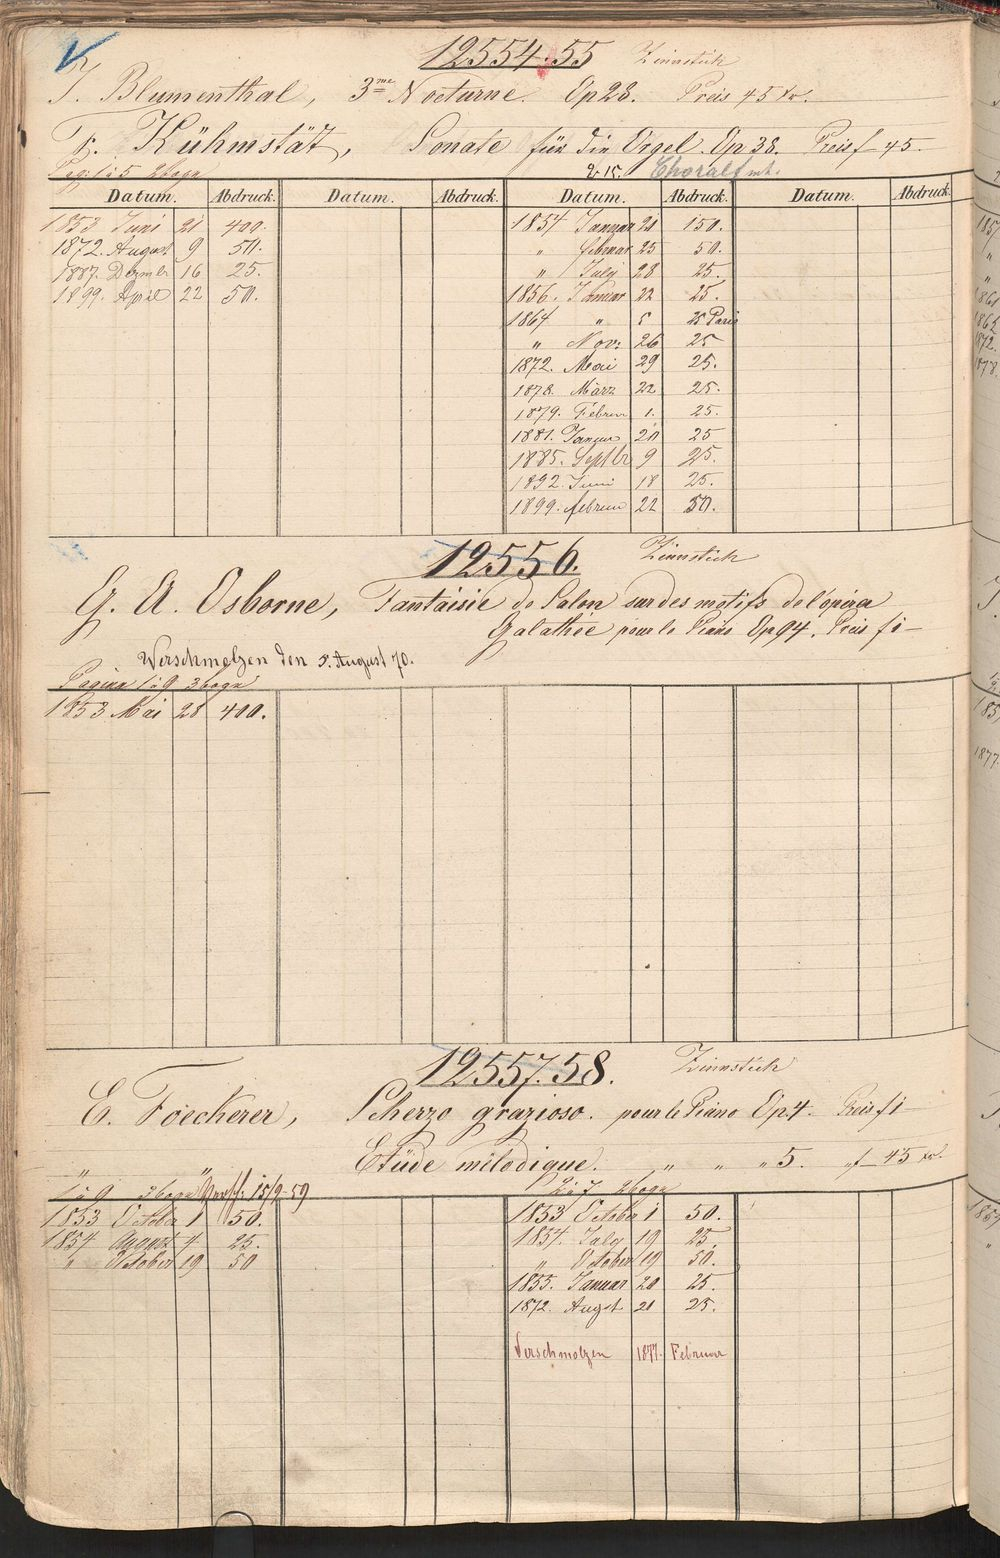 12554.55 Zinnstich
J. Blumenthal, 3me Nocturne. Op 28. Preis 45 kr.
F. Kühmstät, Sonate für die Orgel. Op 38. Preis f 45.
Pag: 1 à 5 2 bogn
2 à 15. Choralf
Datum. Abdruck. Datum. Abdruck. Datum. Abdruck. Datum. Abdruck.
1853 Juni 21 400.
1872. August 9 50.
1887. Dezmbr 16 25.
1899. April 22 50.
1854 Januar 21 150.
" Februar 25 50.
" July 28 25.
1856. Januar 22 25.
1864 " 5 25 Paris
" Nov: 26 25
1872. Mai 29 25.
1878. März 22 25.
1879. Februar 1. 25.
1881. Januar 20 25
1885. Septbr 9 25.
1892. Juni 18 25.
1899. Februar 22 50.
12556. Zinnstich
G. A. Osborne, Fantaisie de Salon sur des motifs de l'opéra
Galathée pour le Piano Op 94. Preis f 1 —
Verschmolzen den 5. August 70.
Pagina 1 à 9 3 bogn
1853 Mai 28 400.
12557.58. Zinnstich
E. Foeckerer, Scherzo grazioso. pour le Piano Op. 4. Preis f 1 —
" " Etüde mélodique. " " " 5. " f — 45 xr.
1 à 9 3 bogn Versch: 15/9 59
2 à 7 2 bogn
1853 October 1 50.
1854 August 4 25.
" October 19 50
1853 October 1 50.
1854. July 19 25.
" October 19 50.
1855. Januar 20 25.
1872. Augst 21 25.
Verschmolzen 1877. Februar